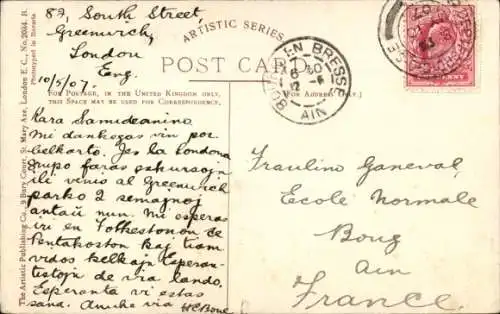 87, South Street,
Greenwich,
London
Eng.
10/5/07.
ARTISTIC SERIES
POST CARD
FOR POSTAGE, IN THE UNITED KINGDOM ONLY,
THIS SPACE MAY BE USED FOR CORRESPONDENCE.
[FOR ADDRESS ONLY.]
Kara Samideanino
Mi dankegas vin por
belkarto. Jes la Londona
grupo faras ekskursojn
ili venis al Greenwich
parko 2 semajnoj
antaŭ nun. Mi esperas
iri en Folkestonon ĉe
Pentakoston kaj tiam
vidos kelkajn Esperan-
tistojn de via lando.
Esperante vi estas
sana. Amike via HCBone
Fraulino Ganeval,
École Normale
Boug
Ain
France.
BOURG EN BRESSE
AIN
The Artistic Publishing Co., 9 Bury Court, St. Mary Axe, London E. C., No. 2034 B.
Photographed in Bavaria